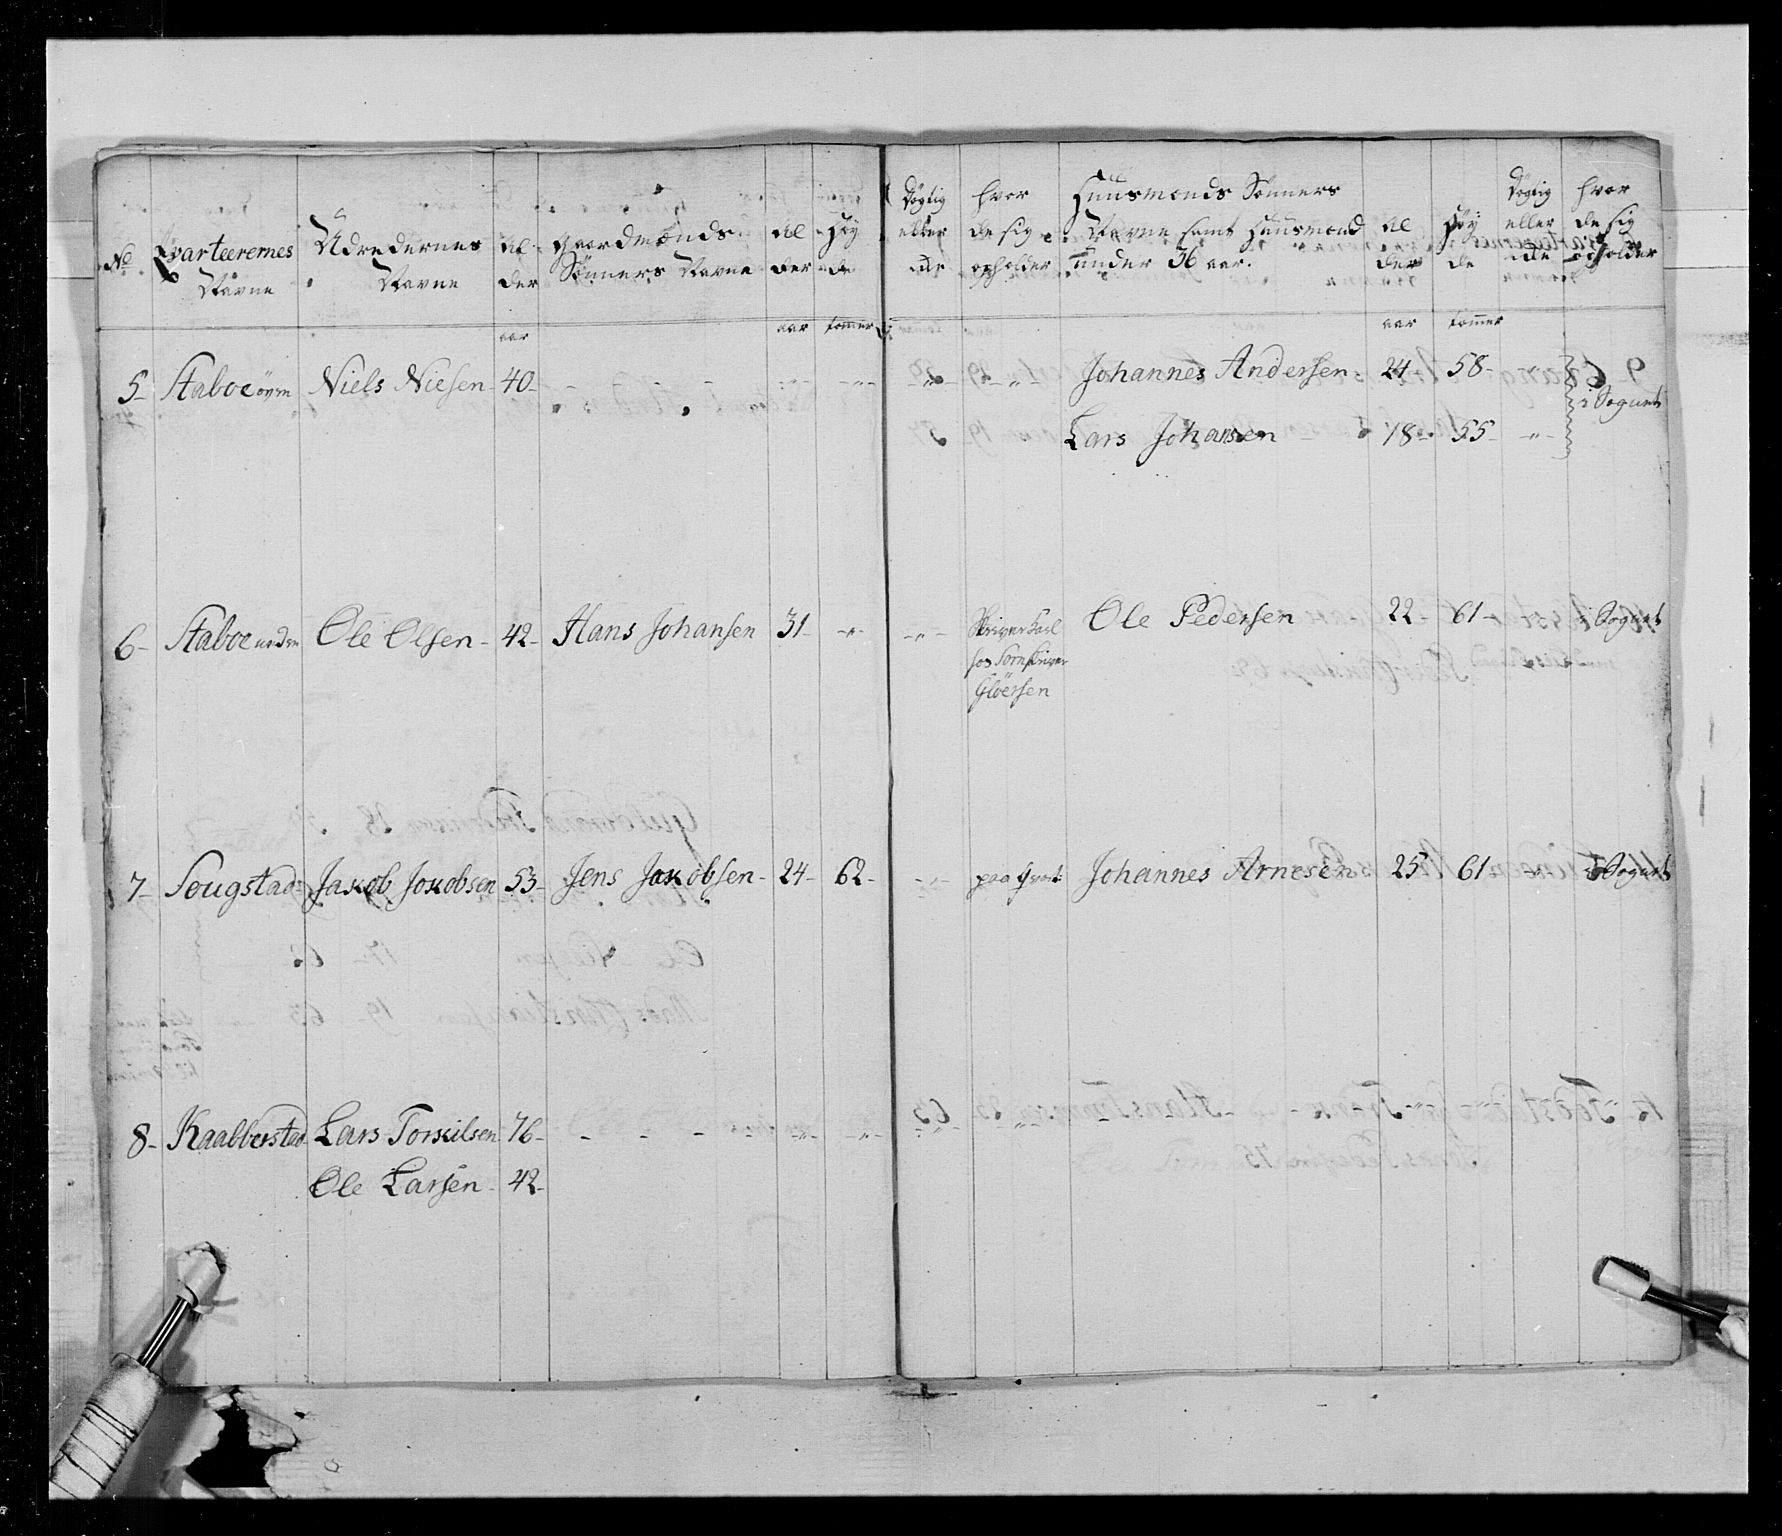 No
Qvarteerernes
Navne
Udredernes
Navne
Al
der
Gaardmænds
Sønners Navne
Al
der
Høy
de
Dygtig
eller
ude
hvor
de sig
opholder
Huusmænds Sønners
Navne samt Huusmænd
under 36 aar.
Al
der
Høy
de
Dygtig
eller
ude
hvor
de sig
opholder
aar
aar
tommer
aar
tommer
5- Staboe øvre Niels Nielsen 40- - - - Johannes Andersen 24- 58- -"-
i Sognet
Lars Johansen 18- 55- -"-
6- Staboe nedre Ole Olsen- 42- Hans Johansen 31- -"- -"- Skriver Karl Ole Pedersen 22- 61- i Sognet
hos Sorenskriver
Gløersen
7- Sougstad- Jakob Jakobsen 53- Jens Jakobsen- 24- 62- -"- paa Johannes Arnesen 25 61- i Sognet
8- Kaalberstad Lars Torkilsen 76- - - - - -"- -"- -"-
Ole Larsen- 42-